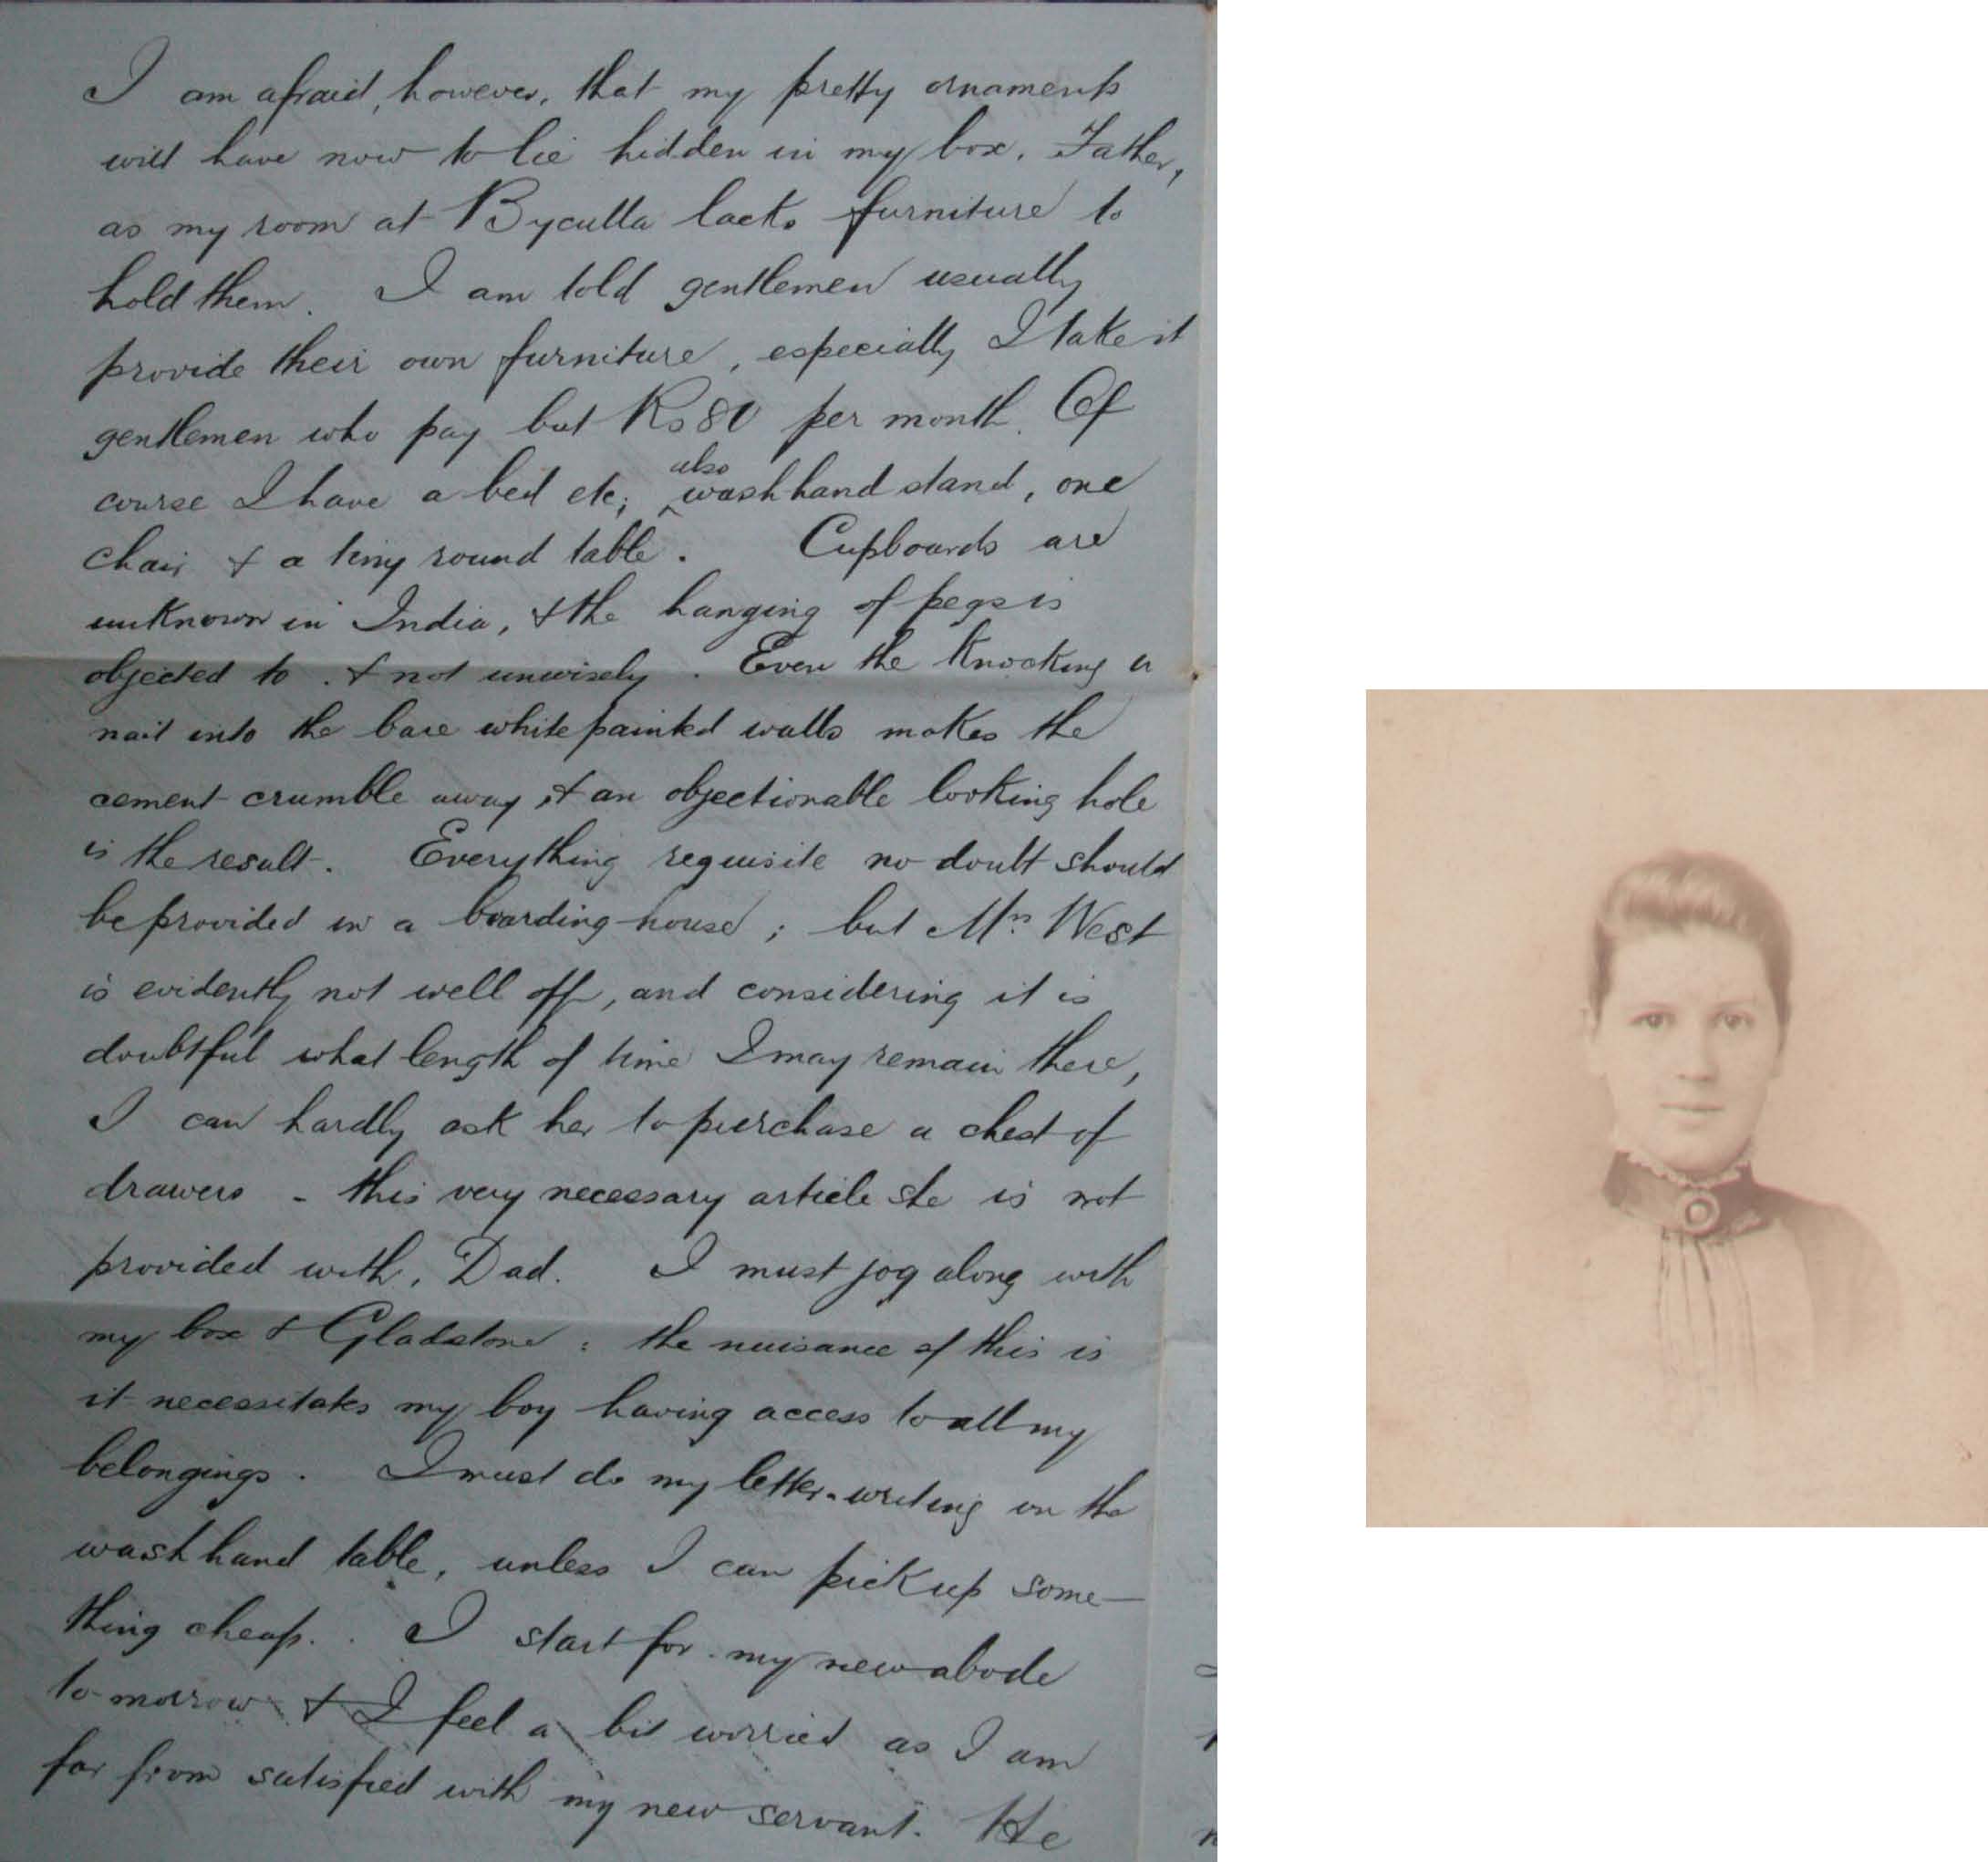 I am afraid, however, that my pretty ornaments
will have now to lie hidden in my box, Father,
as my room at Byculla lacks furniture to
hold them. I am told gentlemen usually
provide their own furniture, especially I take it
gentlemen who pay but Rs 80 per month. Of
course I have a bed etc; also washhand stand, one
chair & a tiny round table. Cupboards are
unknown in India, & the hanging of pegs is
objected to & not unwisely. Even the knocking a
nail into the bare white painted walls makes the
cement crumble away, & an objectionable looking hole
is the result. Everything requisite no doubt should
be provided in a boarding-house; but Mrs West
is evidently not well off, and considering it is
doubtful what length of time I may remain there,
I can hardly ask her to purchase a chest of
drawers - this very necessary article she is not
provided with, Dad. I must jog along with
my box & Gladstone: the nuisance of this is
it necessitates my boy having access to all my
belongings. I must do my letter-writing on the
washhand table, unless I can pick up some-
thing cheap. I start for my new abode
to-morrow & I feel a bit worried as I am
far from satisfied with my new servant. He